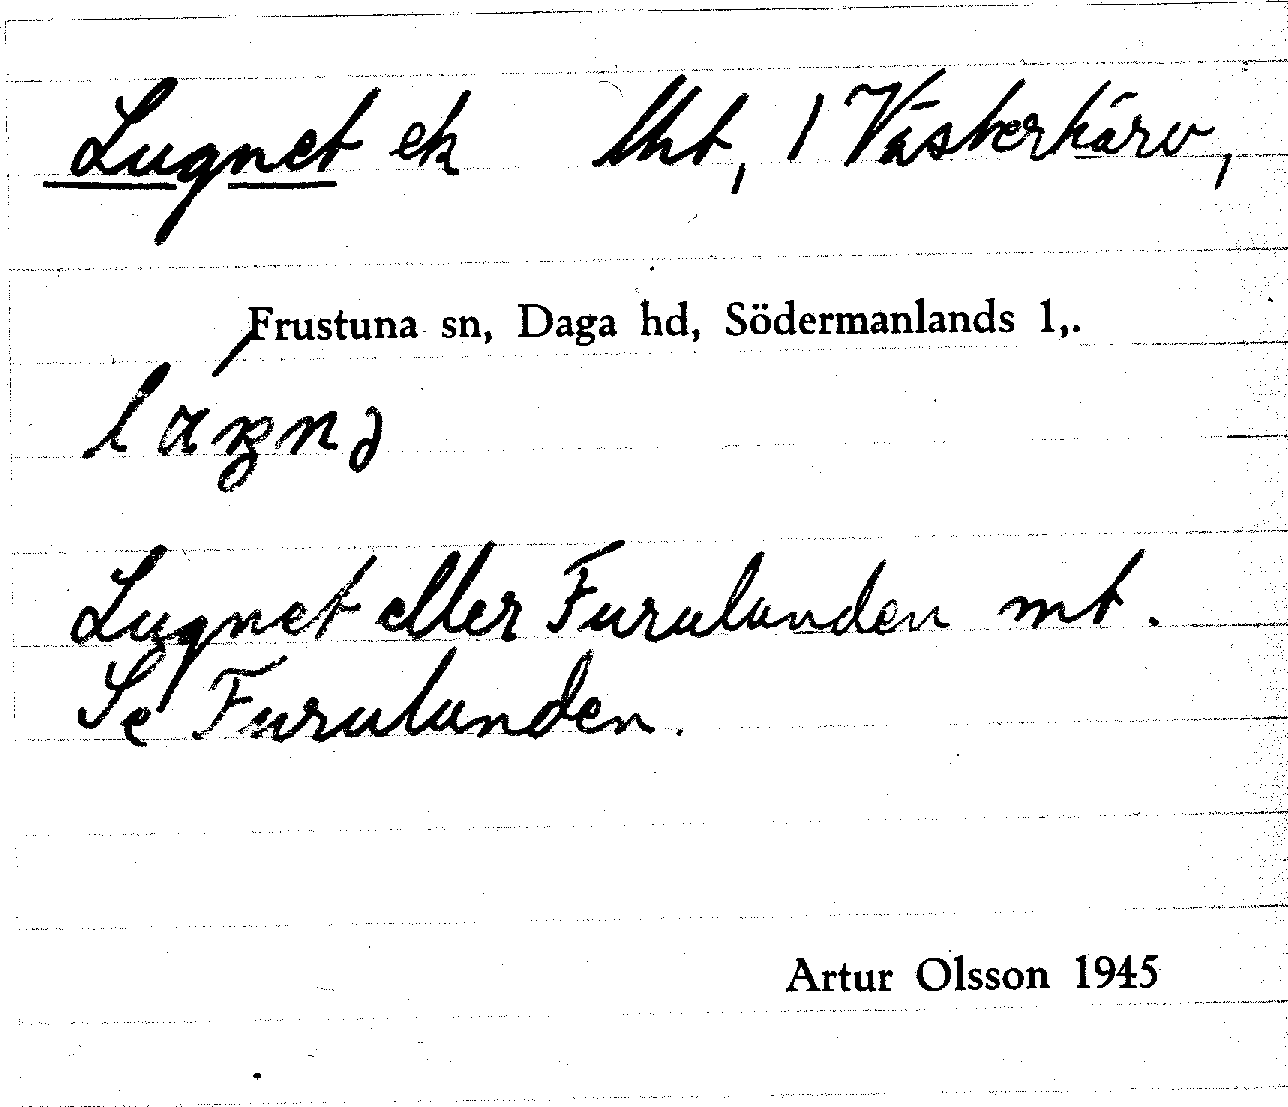 Lugnet ek lht, 1 Västerkärv,
Frustuna sn, Daga hd, Södermanlands l,.
Lugnet eller Furulunden mt.
Se Furulunden.
Artur Olsson 1945